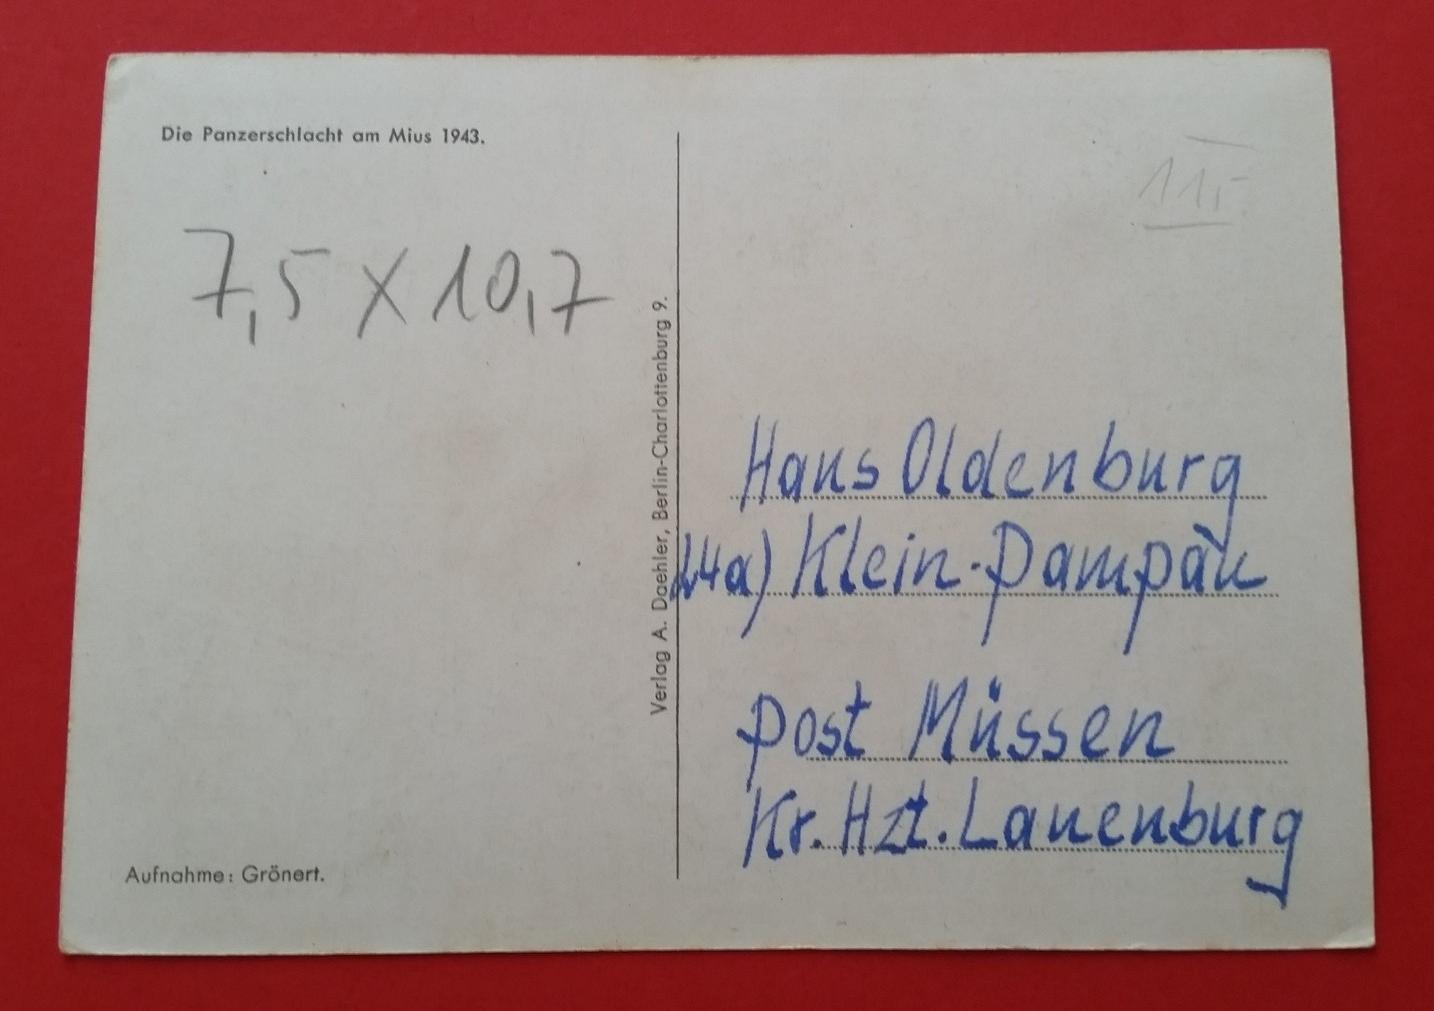 Die Panzerschlacht am Mius 1943.
7,5 X 10,7
Aufnahme: Grönert.
Verlag A. Daehler, Berlin-Charlottenburg 9.
11,-
Hans Oldenburg
24a) Klein-Pampau
Post Müssen
Kr. Hzt. Lauenburg